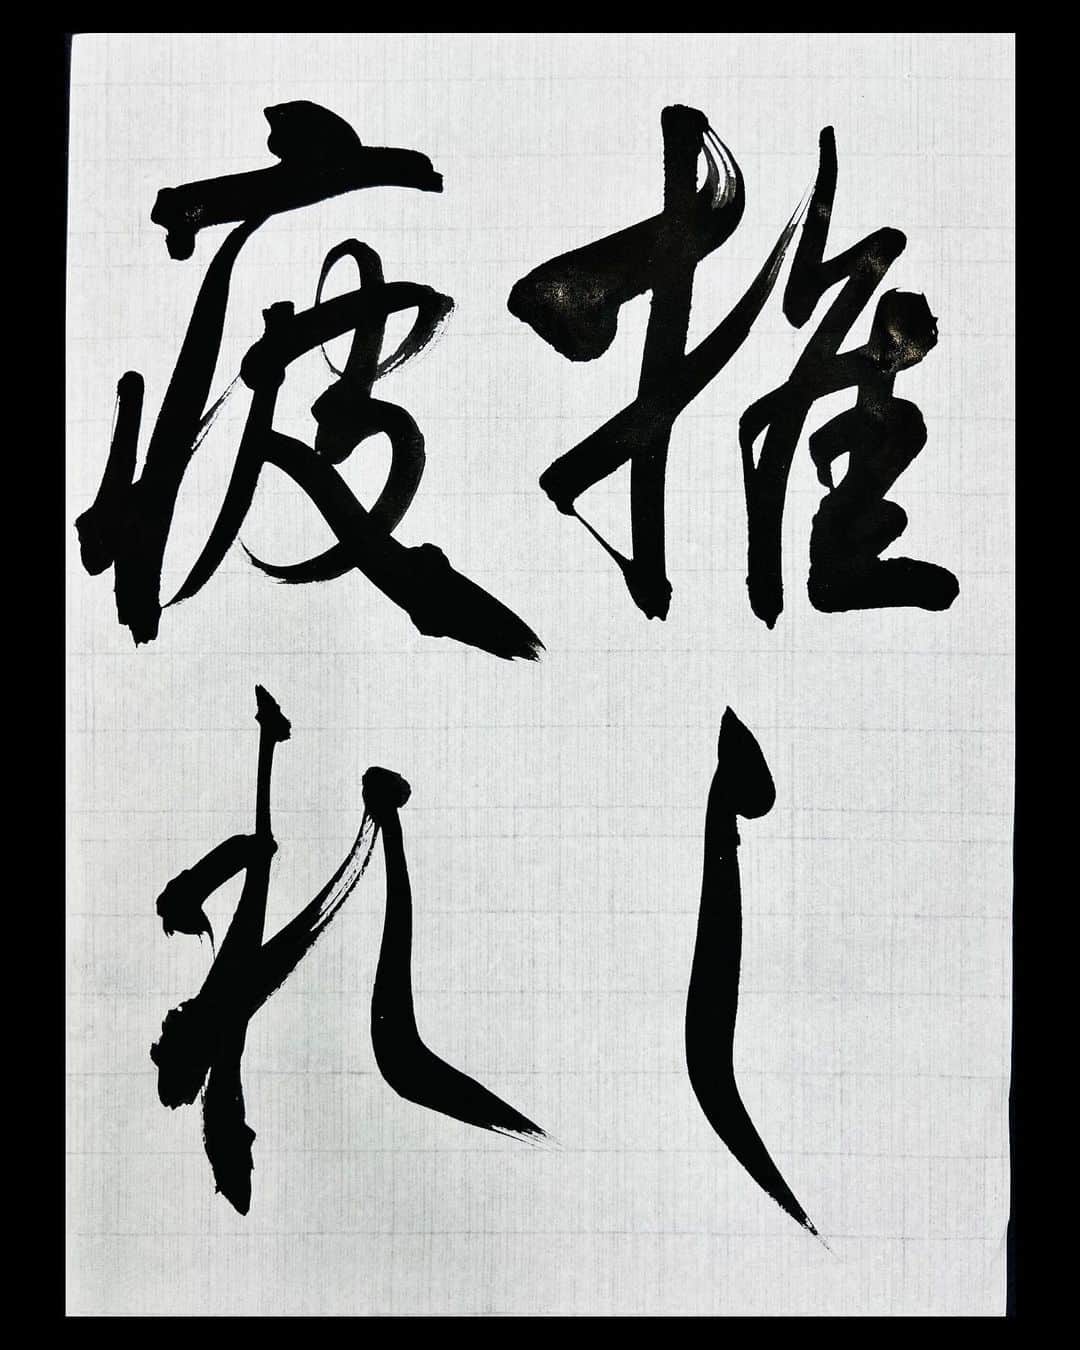 推し
疲れ